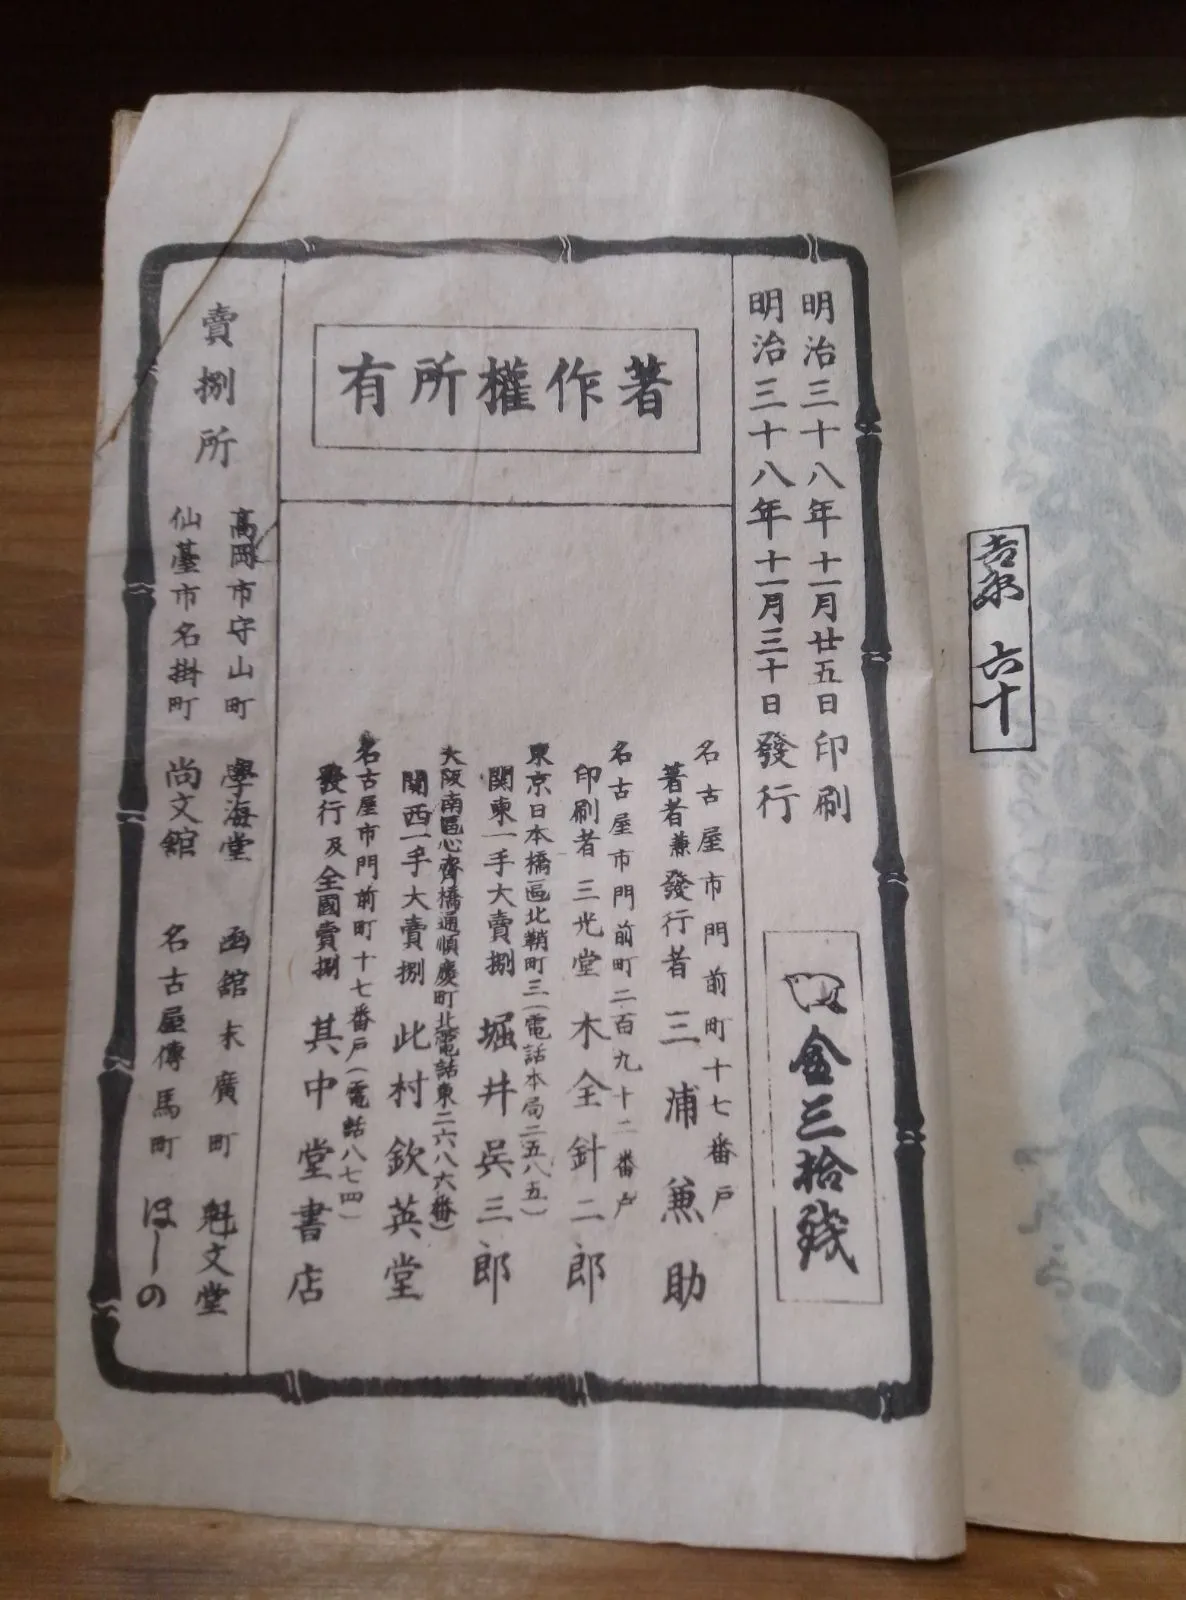 六十
明治三十八年十一月廿五日印刷
明治三十八年十一月三十日發行
金三拾錢
著作權所有
名古屋市門前町十七番戸
著者兼發行者 三浦兼助
名古屋市門前町二百九十二番戸
印刷者 三光堂 木全針二郎
東京日本橋區北鞘町三(電話本局二五八五)
関東一手大賣捌 堀井吳三郎
大阪南區心齋橋通順慶町北(電話東二六八六番)
関西一手大賣捌 此村欽英堂
名古屋市門前町十七番戸(電話八七四)
發行及全國賣捌 其中堂書店
賣捌所
高岡市守山町 學海堂
函館末廣町 魁文堂
仙臺市名掛町 尚文館
名古屋傳馬町 ほしの